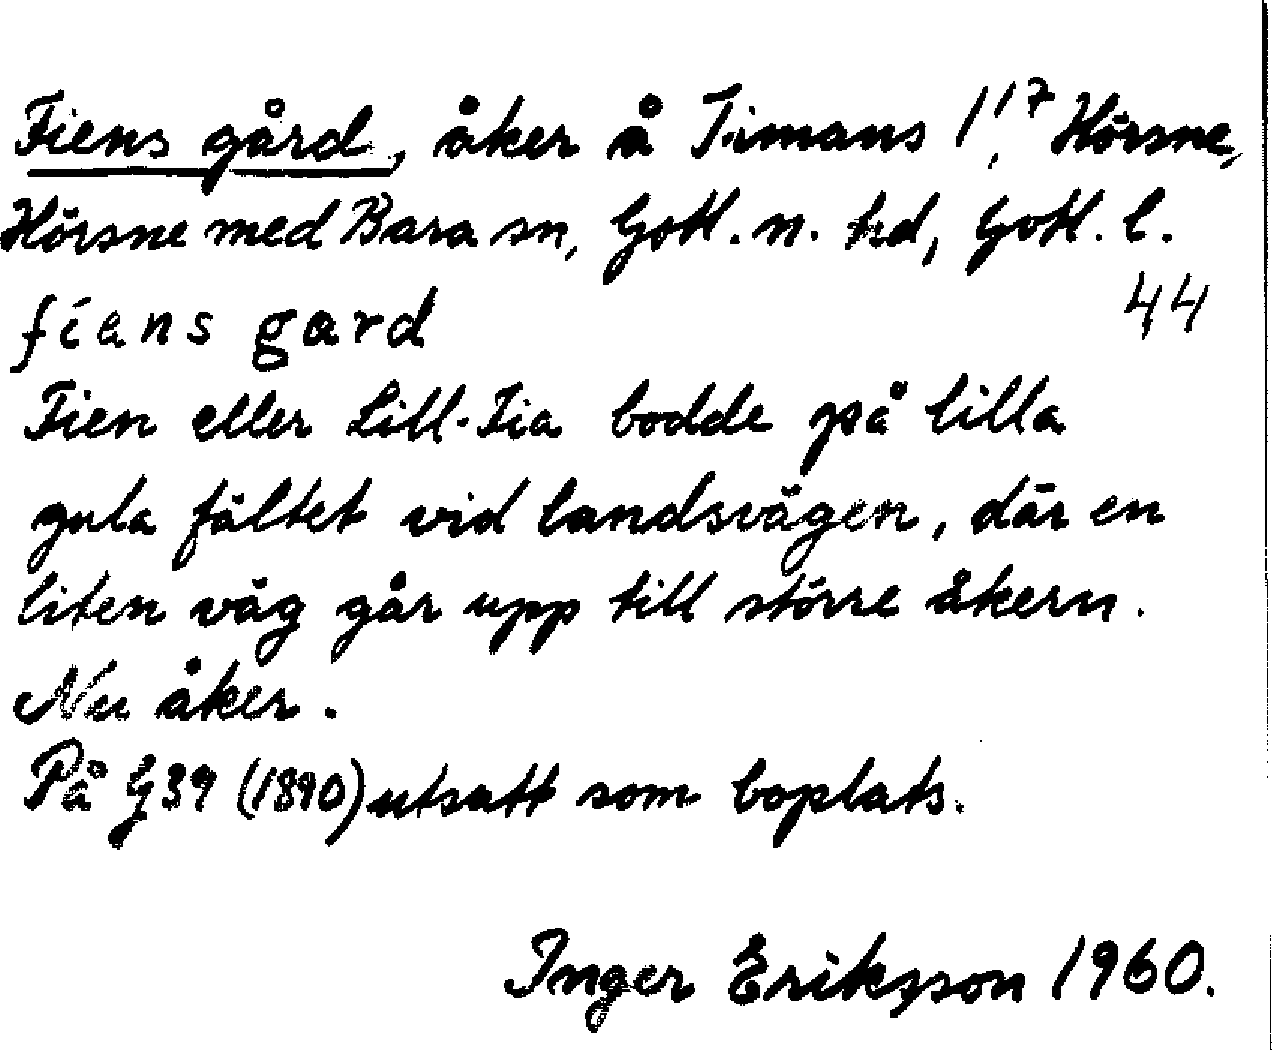 Fiens gård, åker å Timans 1:17 Hörsne,
Hörsne med Bara sn, Gotl. n. hd, Gotl. l.
fians gard 44
Fien eller Lill-Fia bodde på lilla
gula fältet vid landsvägen, där en
liten väg går upp till större åkern.
Nu åker.
På G39 (1890) utsatt som boplats.
Inger Eriksson 1960.